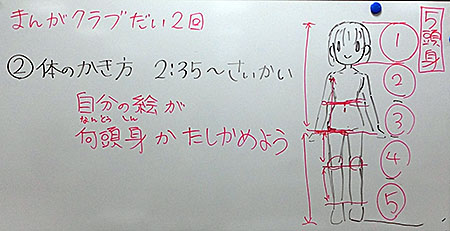 まんがクラブだい2回
②体のかき方 2:35〜さいかい
自分の絵が
なんとう しん
何頭身かたしかめよう
5頭身
1
2
3
4
5